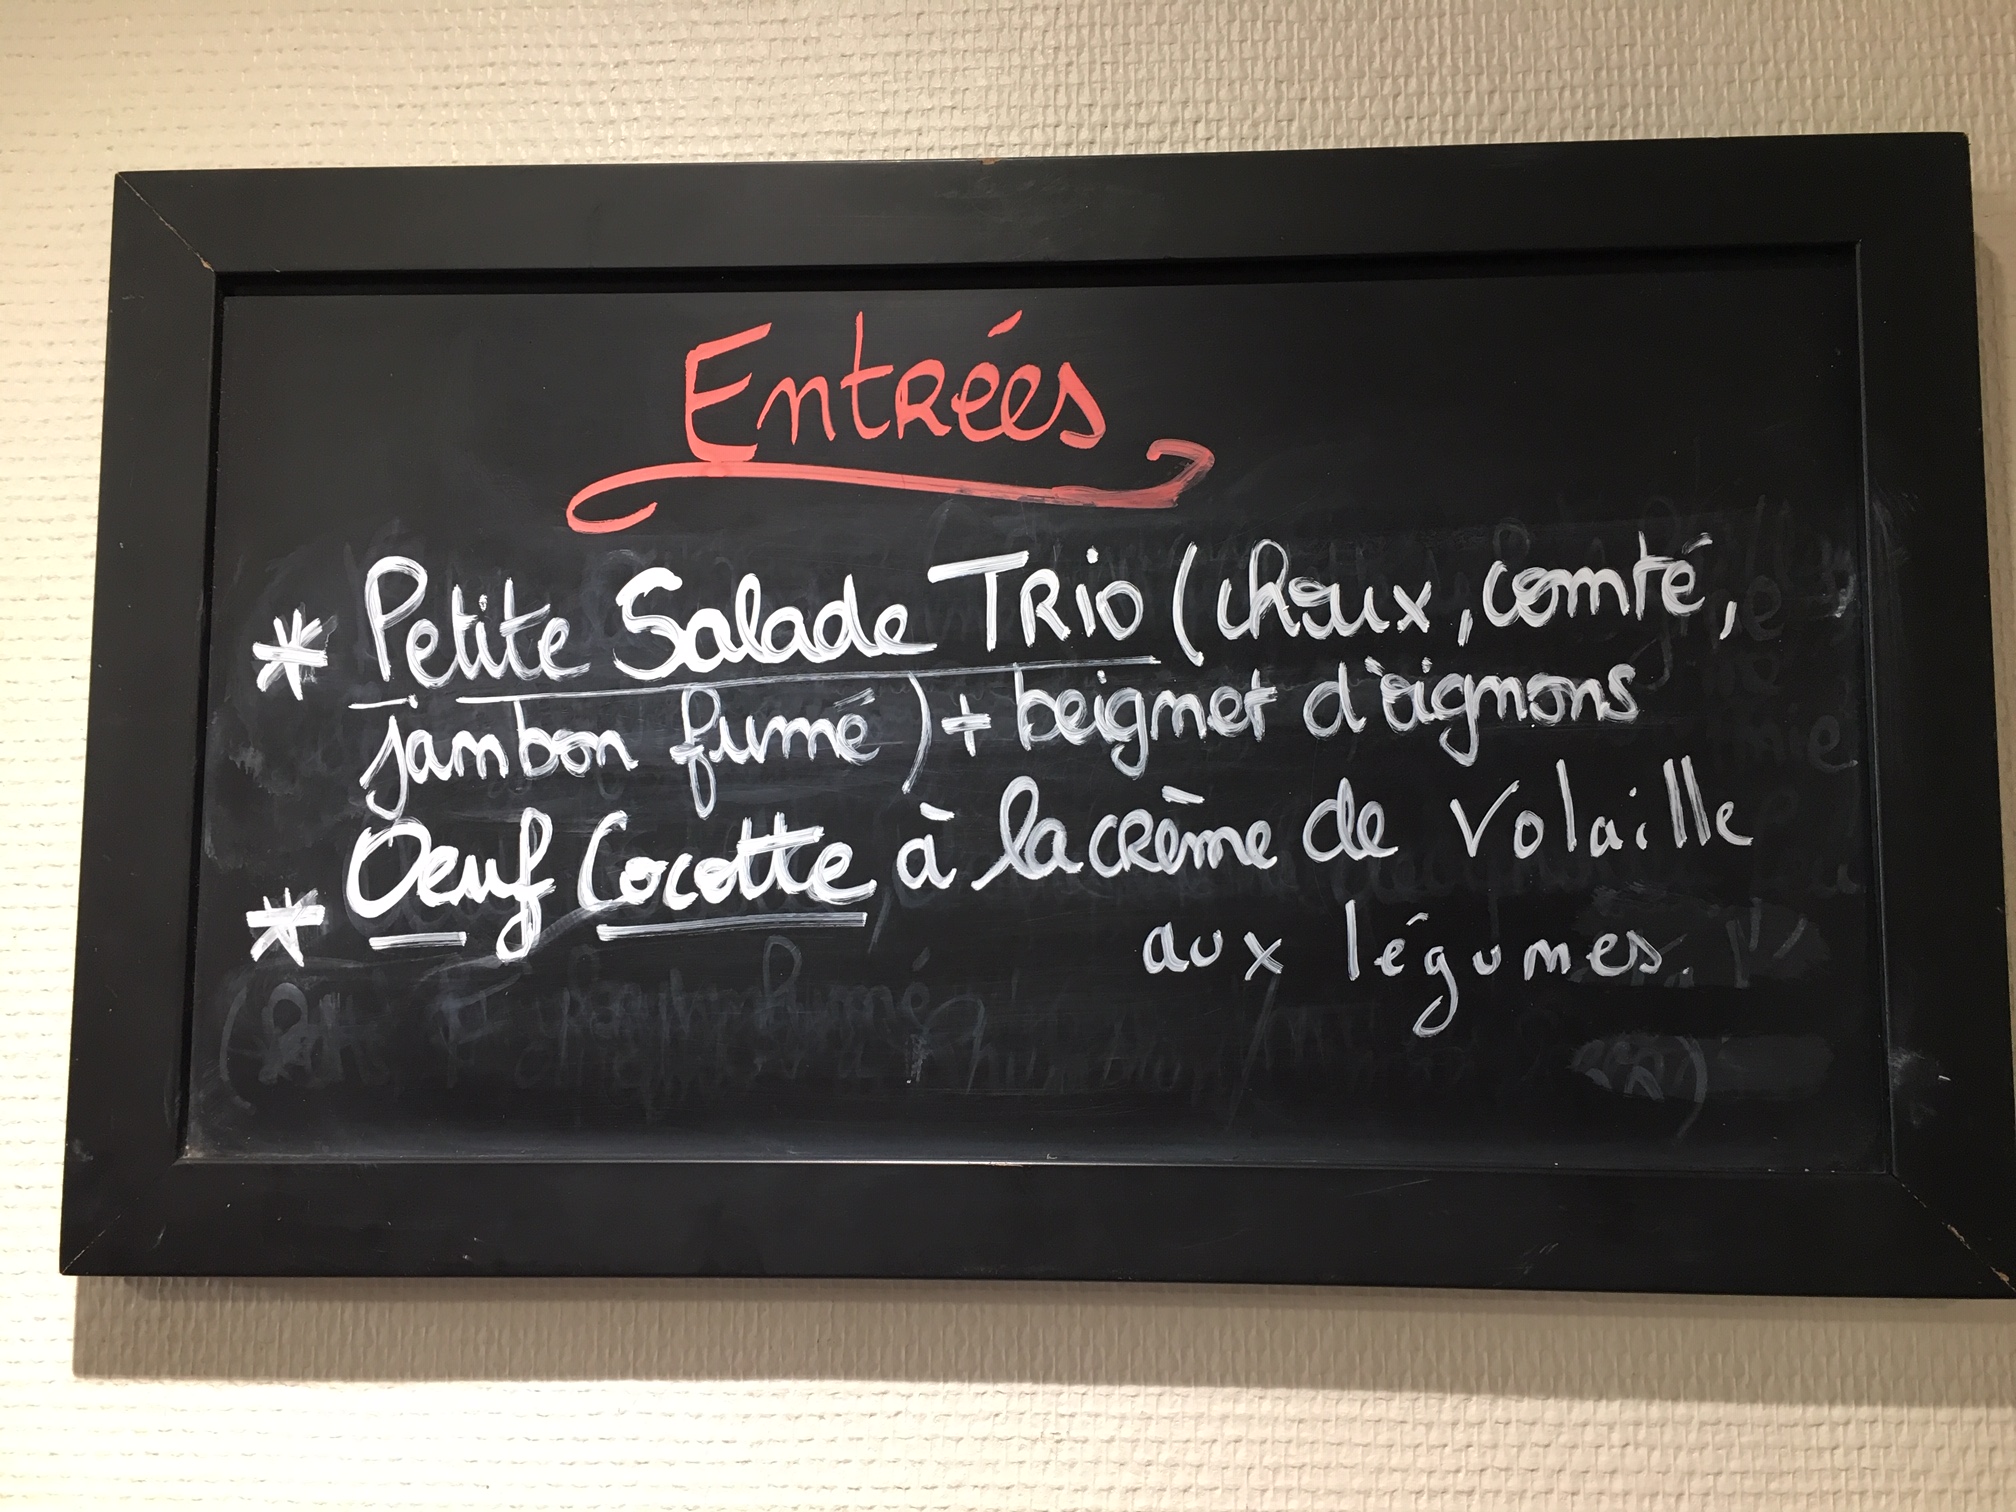 Entrées
* Petite Salade Trio (choux, comté,
jambon fumé) + beignet d'oignons
* Oeuf Cocotte à la crème de Volaille
aux légumes.